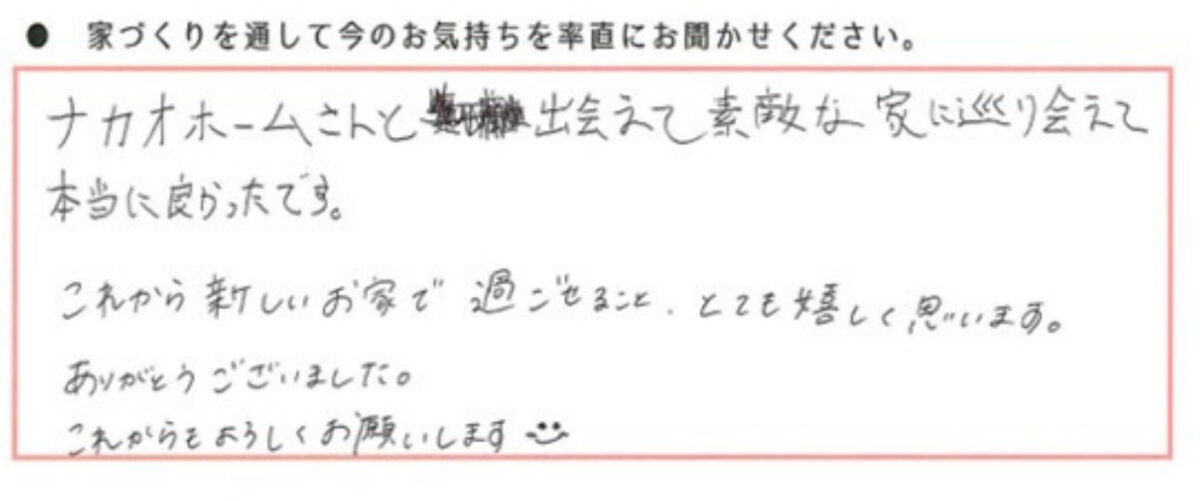 ● 家づくりを通して今のお気持ちを率直にお聞かせください。
ナカオホームさんと出会えて素敵な家に巡り会えて
本当に良かったです。
これから新しいお家で過ごせること、とても嬉しく思います。
ありがとうございました。
これからもよろしくお願いします